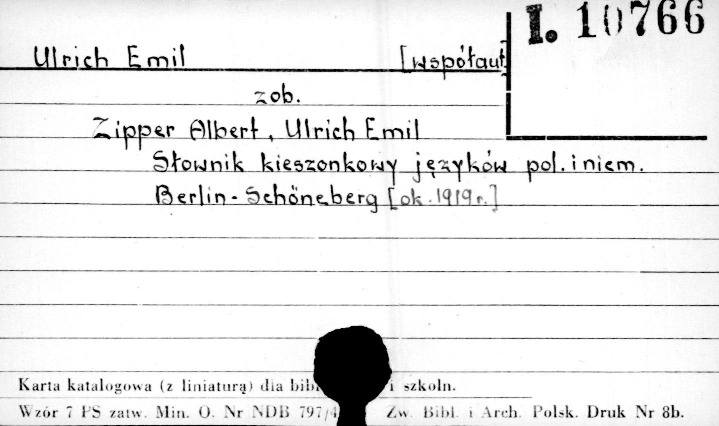 I. 10766
Ulrich Emil [współaut.
zob.
Zipper Albert, Ulrich Emil
Słownik kieszonkowy języków pol. i niem.
Berlin-Schöneberg [ok. 1919 r.]
Karta katalogowa (z liniaturą) dla bibl i szkoln.
Wzór 7 PS zatw. Min. O. Nr NDB 797/4 Zw. Bibl. i Arch. Polsk. Druk Nr 8b.